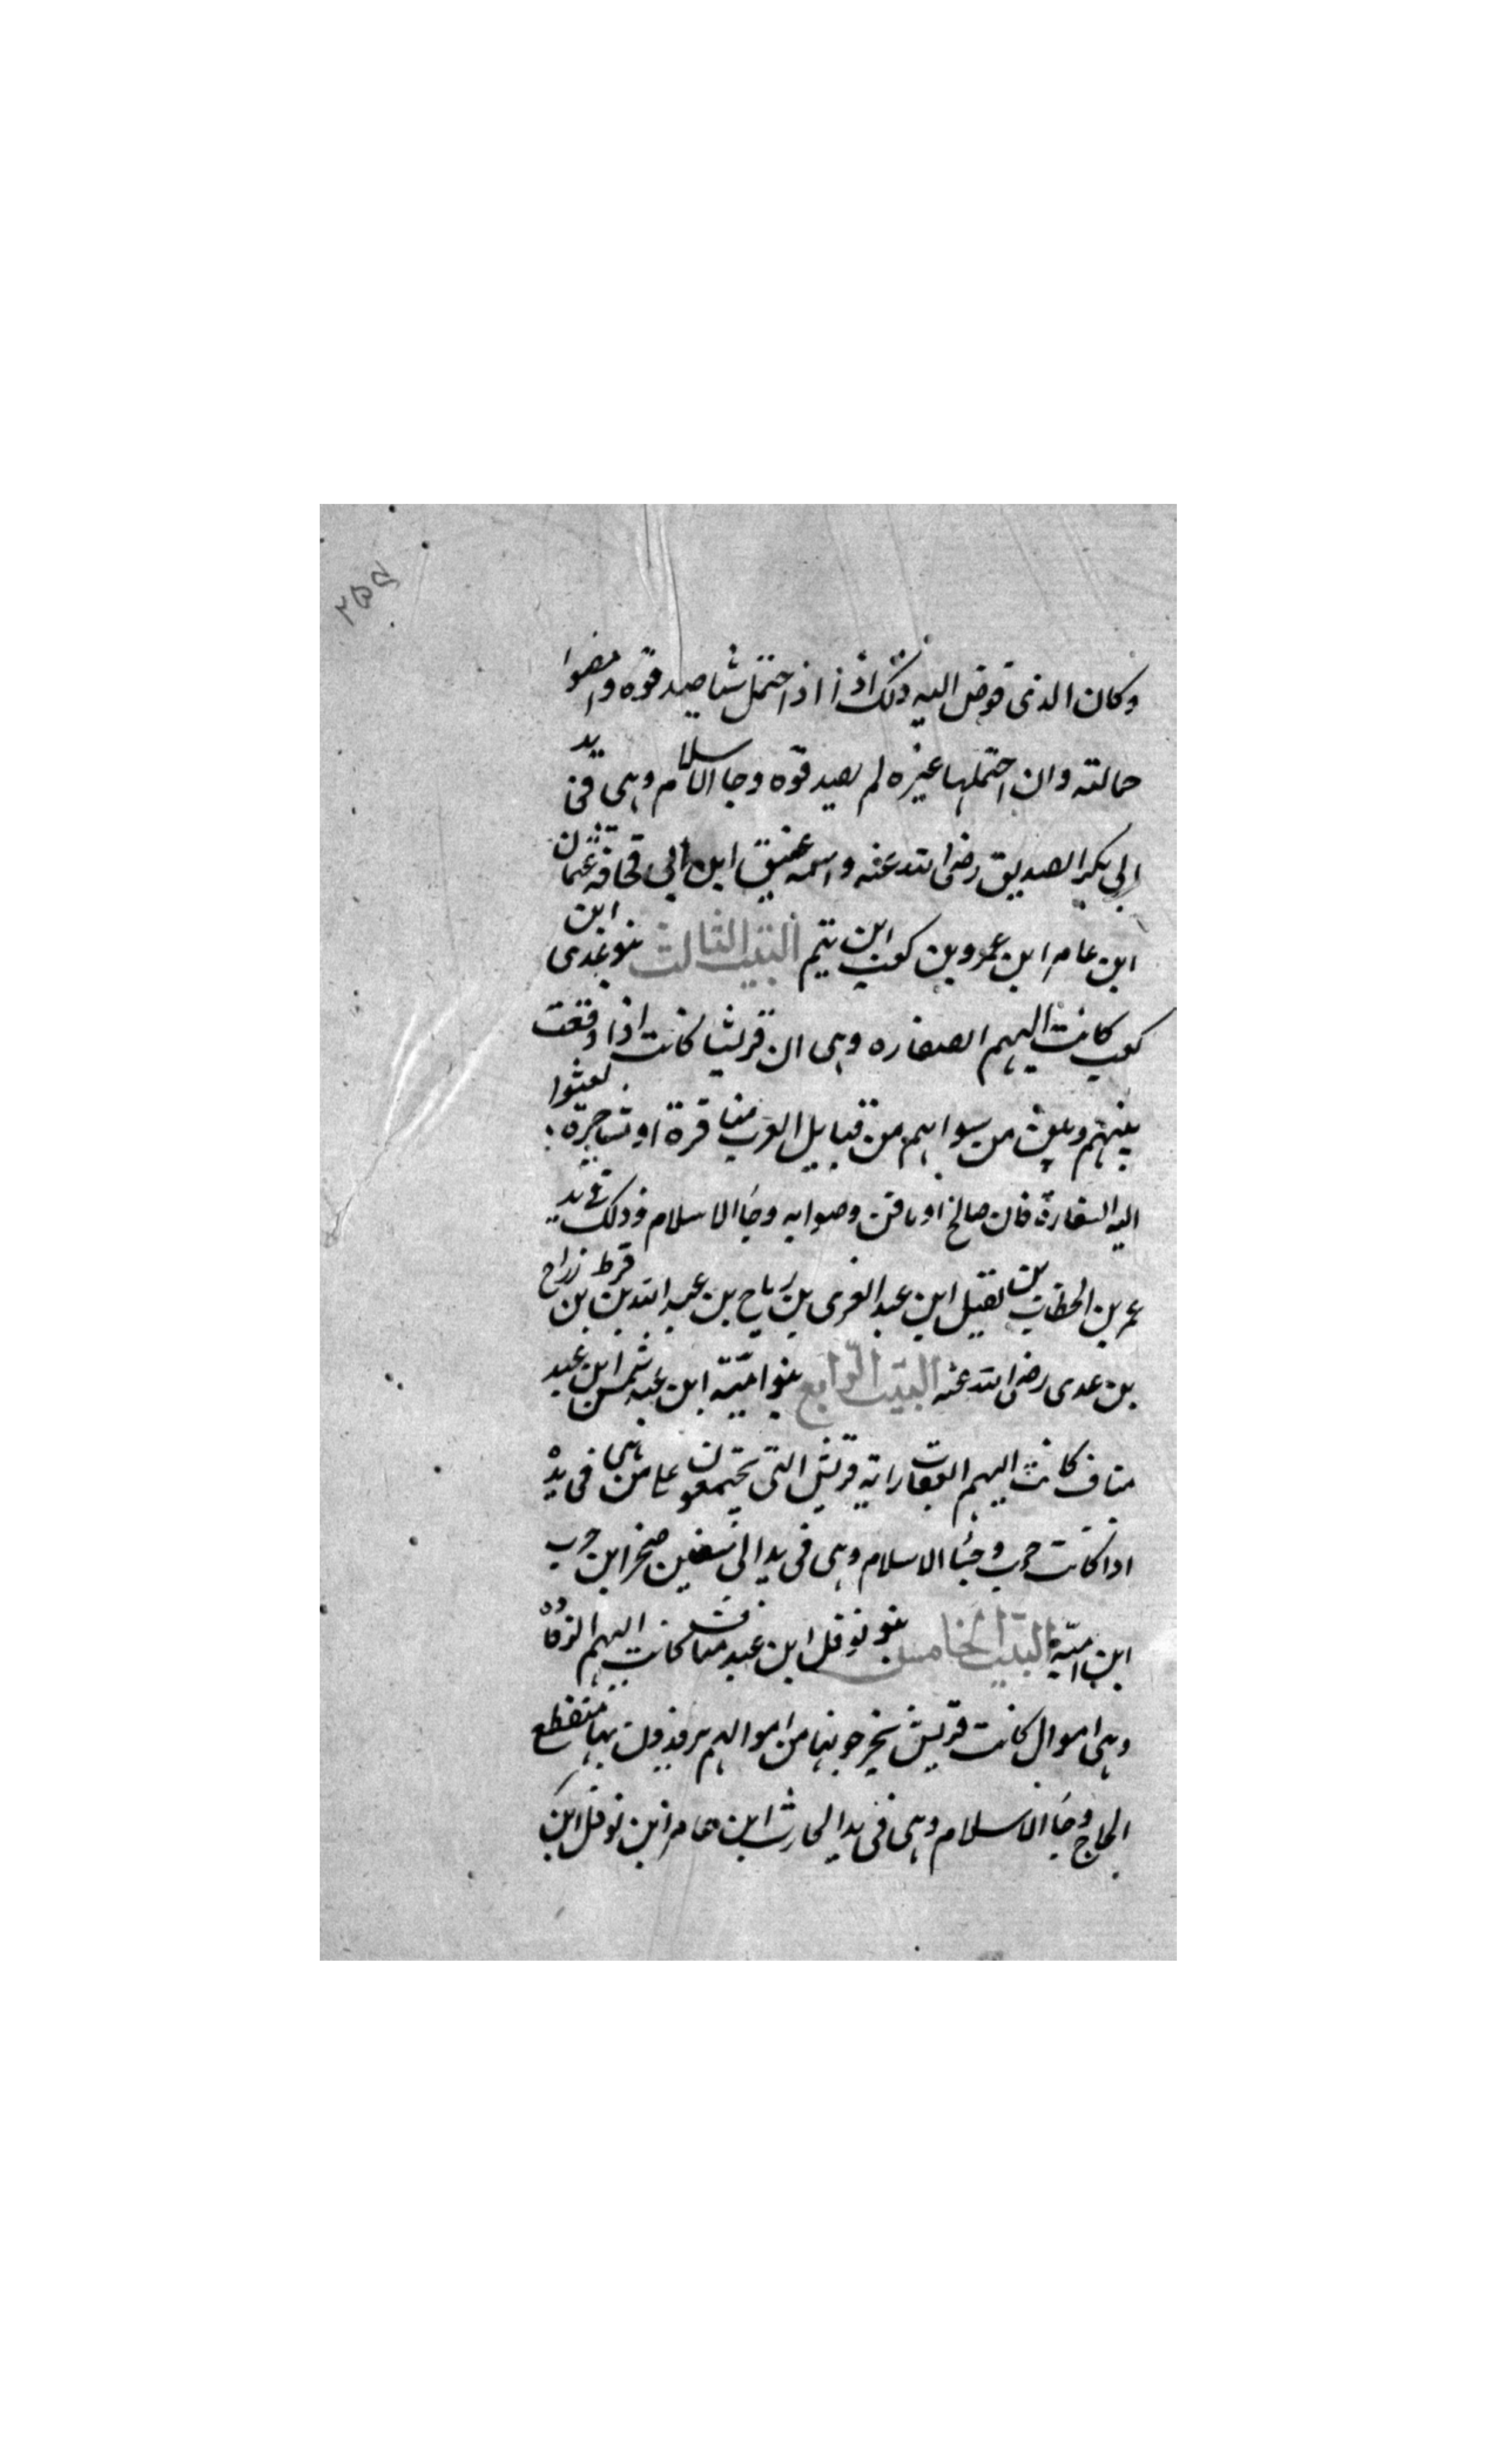 ٢٥٥
وكان الذى فوض اليه ذلك اذا اذا احتمل شيا صدقوه وامضوا
حمالته وان احتملها غيره لم يصدقوه وجا الاسلام وهى فى يد
ابى بكر الصديق رضى الله عنه واسمه عتيق ابن ابى قحافه عثمان
ابن عامر ابن عمرو بن كعب ابن تيم البيت الثالث بنو عدى ابن
كعب كانت اليهم السفاره وهى ان قريشا كانت اذا وقعت
بينهم وبين من سواهم من قبايل العرب منافرة او تشاجرة بعثوا
اليه السفارة فان صالح او نافر وصوابه وجا الاسلام وذلك فى يد
عمر بن الخطاب بن نفيل ابن عبد العزى بن رياح بن عبد الله بن قرط بن زراح
بن عدى رضى الله عنه البيت الرابع بنو امية ابن عبد شمس ابن عبد
مناف كانت اليهم العقاب راية قريش التى يجتمعون على من هى فى يده
اذا كانت حرب وجا الاسلام وهى فى يد ابى سفين صخر ابن حرب
ابن امية البيت الخامس بنو نوفل ابن عبد مناف كانت اليهم الرفاده
وهى اموال كانت قريش يخرجونها من اموالهم يرفدون بها منقطع
الحاج وجا الاسلام وهى فى يد الحارث ابن عامر ابن نوفل ابن